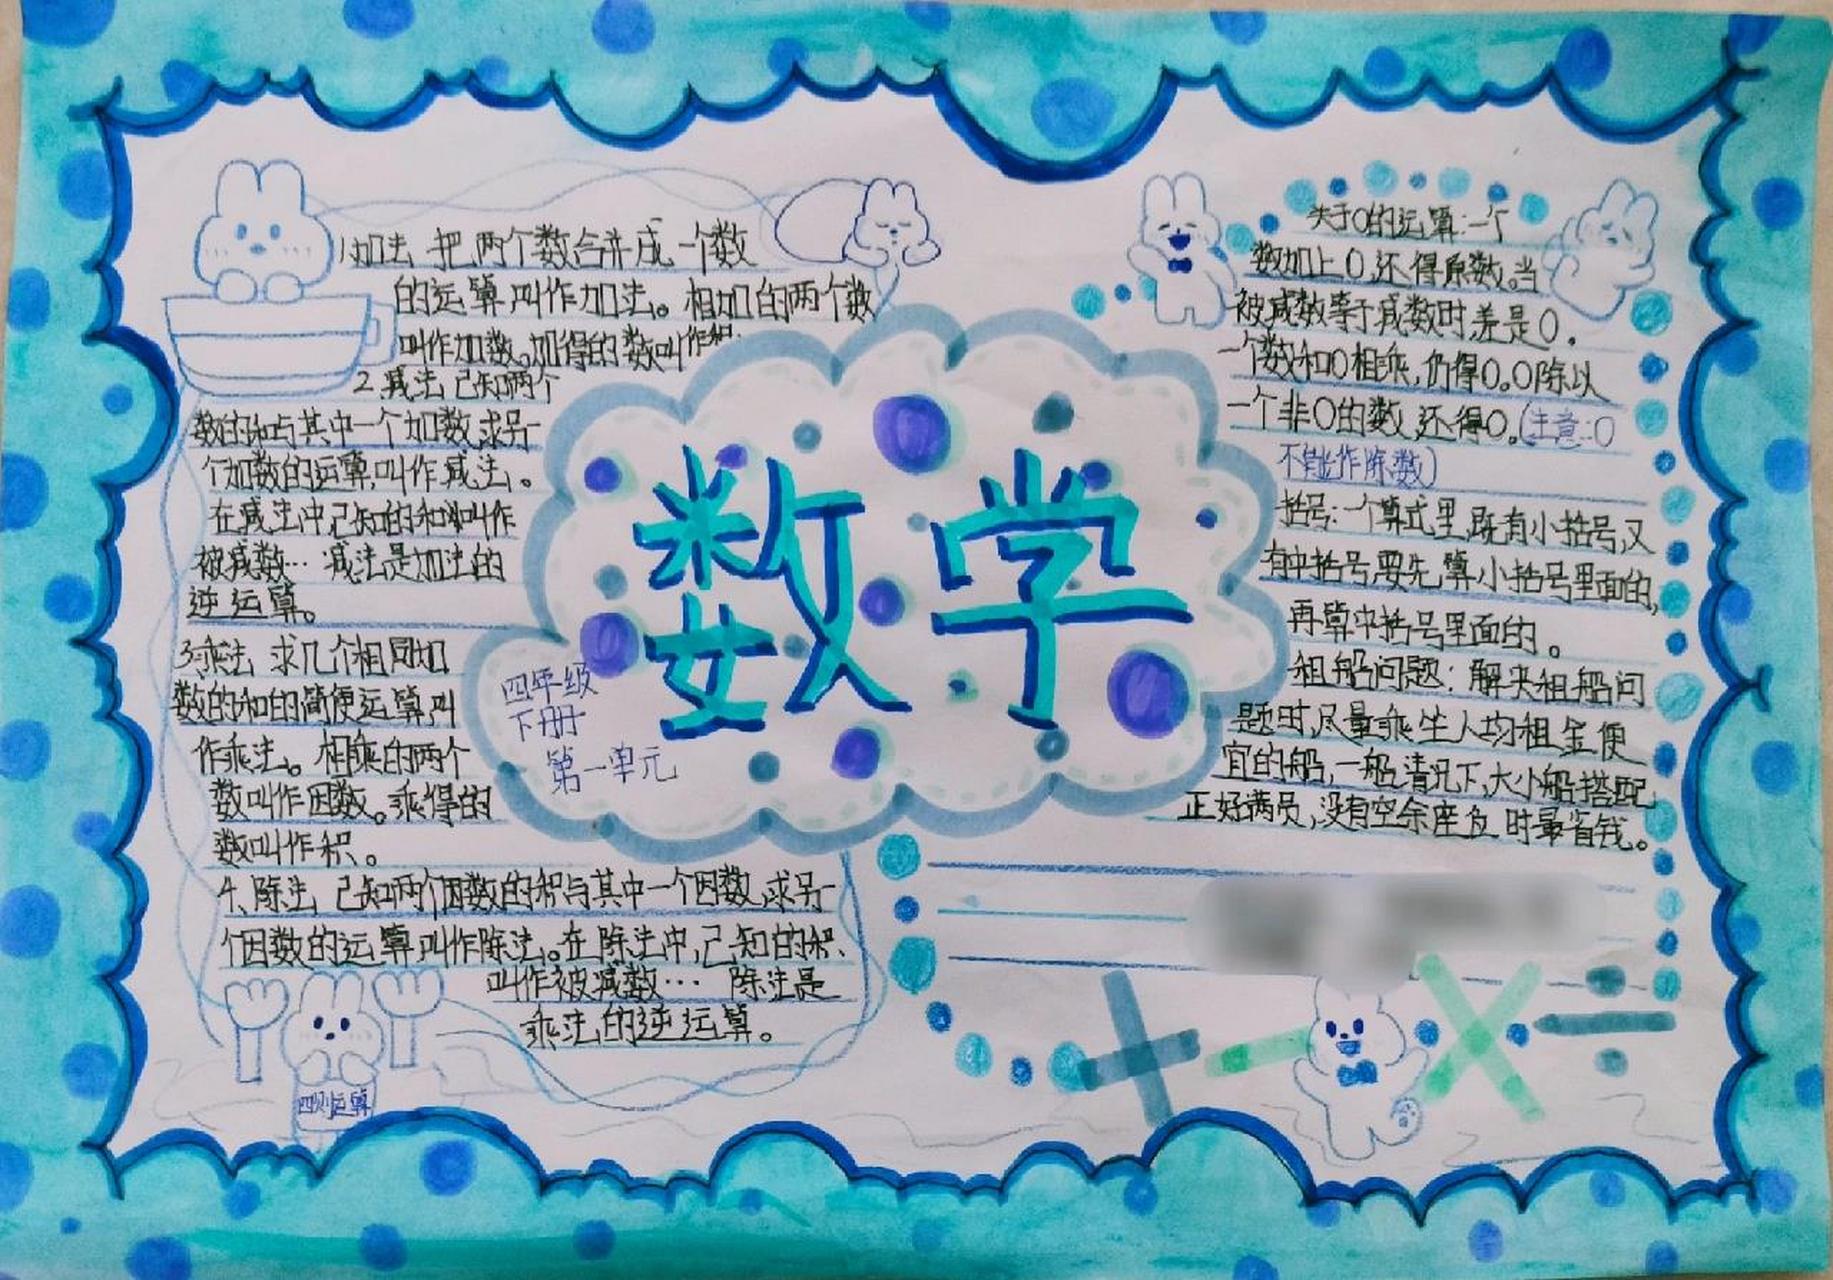 1.加法 把两个数合并成一个数
的运算叫作加法。相加的两个数
叫作加数。加得的数叫作积.
2.减法 已知两个
数的和与其中一个加数,求另一
个加数的运算,叫作减法。
在减法中已知的和叫作
被减数… 减法是加法的
逆运算。
3.乘法 求几个相同加
数的和的简便运算,叫
作乘法。相乘的两个
数叫作因数。乘得的
数叫作积。
4.除法 已知两个因数的积与其中一个因数,求另一
个因数的运算,叫作除法。在除法中,已知的积、
叫作被减数… 除法是
乘法的逆运算。
四则运算
数学
四年级
下册
第一单元
关于0的运算:一个
数加上0,还得原数。当
被减数等于减数时,差是0。
一个数和0相乘,仍得0。0除以
一个非0的数,还得0。(注意:0
不能作除数)
括号:一个算式里,既有小括号,又
有中括号,要先算小括号里面的,
再算中括号里面的。
租船问题:解决租船问
题时,尽量乘坐人均租金便
宜的船,一般情况下,大小船搭配
正好满员,没有空余座位时最省钱。
+ - × ÷